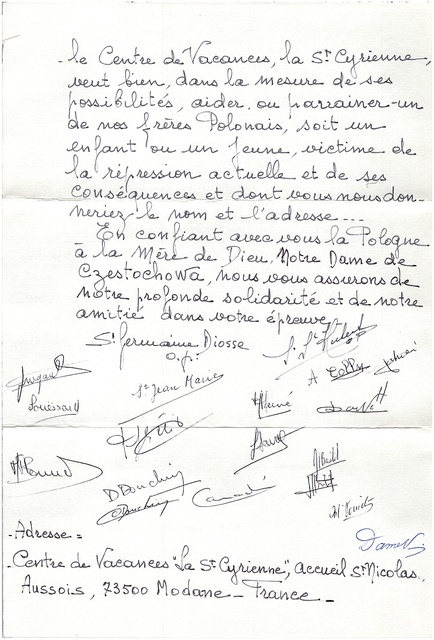 le Centre de Vacances, la St Cyrienne,
veut bien, dans la mesure de ses
possibilités, aider, ou parrainer un
de nos frères Polonais, soit un
enfant ou un jeune, victime de
la répression actuelle et de ses
conséquences et dont vous nous don-
neriez le nom et l'adresse...
En confiant avec vous la Pologne
à la Mère de Dieu, Notre Dame de
Czestochowa, nous vous assurons de
notre profonde solidarité et de notre
amitié dans votre épreuve
Sr Germaine Diosse
o.p.
Sr Jean Marie
D Bouchin
- Adresse =
- Centre de Vacances "La St Cyrienne", Accueil St Nicolas.
Aussois, 73500 Modane - France -